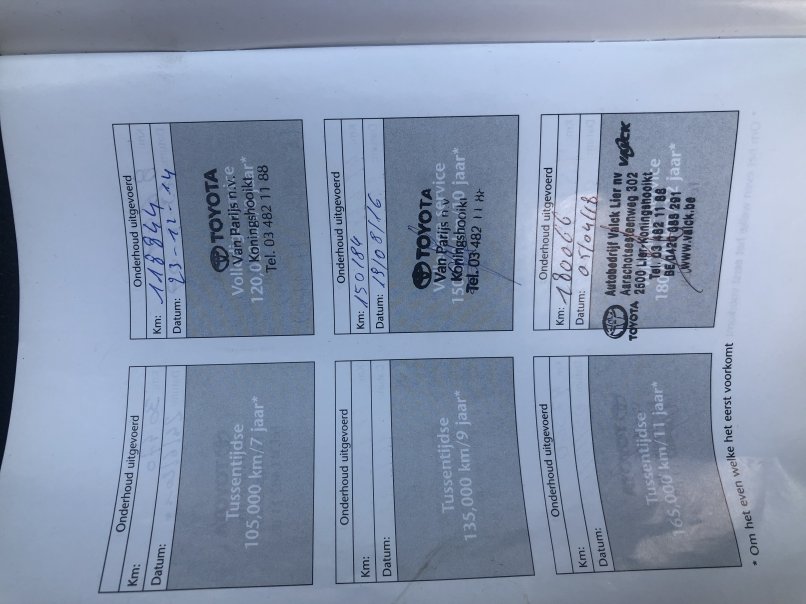 Onderhoud uitgevoerd
Km:
Datum:
Tussentijdse
105,000 km/7 jaar*
Onderhoud uitgevoerd
Km: 118844
Datum: 23-12-14
TOYOTA
Van Parijs n.v.
Koningshooikt
Tel. 03 482 11 88
Onderhoud uitgevoerd
Km:
Datum:
Tussentijdse
135,000 km/9 jaar*
Onderhoud uitgevoerd
Km: 150184
Datum: 19/08/16
TOYOTA
Van Parijs n.v.
Koningshooikt
Tel. 03 482 11 88
Onderhoud uitgevoerd
Km:
Datum:
Tussentijdse
165,000 km/11 jaar*
Onderhoud uitgevoerd
Km: 180066
Datum: 05/04/18
TOYOTA
Autobedrijf Valck Lier nv
Aarschotsesteenweg 302
2500 Lier-Koningshooikt
Tel. 03 482 11 88
www.valck.be
Valck
* Om het even welke het eerst voorkomt